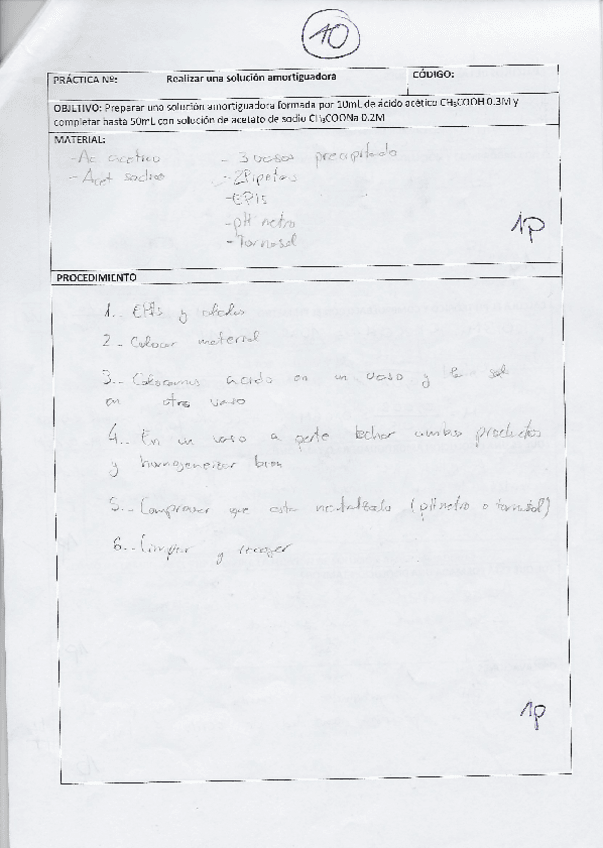 10
PRÁCTICA Nº: Realizar una solución amortiguadora CÓDIGO:
OBJETIVO: Preparar una solución amortiguadora formada por 10mL de ácido acético CH₃COOH 0.3M y
completar hasta 50mL con solución de acetato de sodio CH₃COONa 0.2M
MATERIAL:
-Ac acetico - 3 vasos precipitado
-Acet sodico - 2 Pipetas
-EPIs
-pH metro
-Tornasol
1p
PROCEDIMIENTO
1.. EPIs y
2.- Colocar material
3.. Colocamos acido en un vaso y la sal
en otro vaso
4.. En un vaso a parte echar ambos productos
y homogeneizar bien
5.. Comprovar que esta neutralizado (pHmetro o tornasol)
6.. Limpiar y recoger
1p